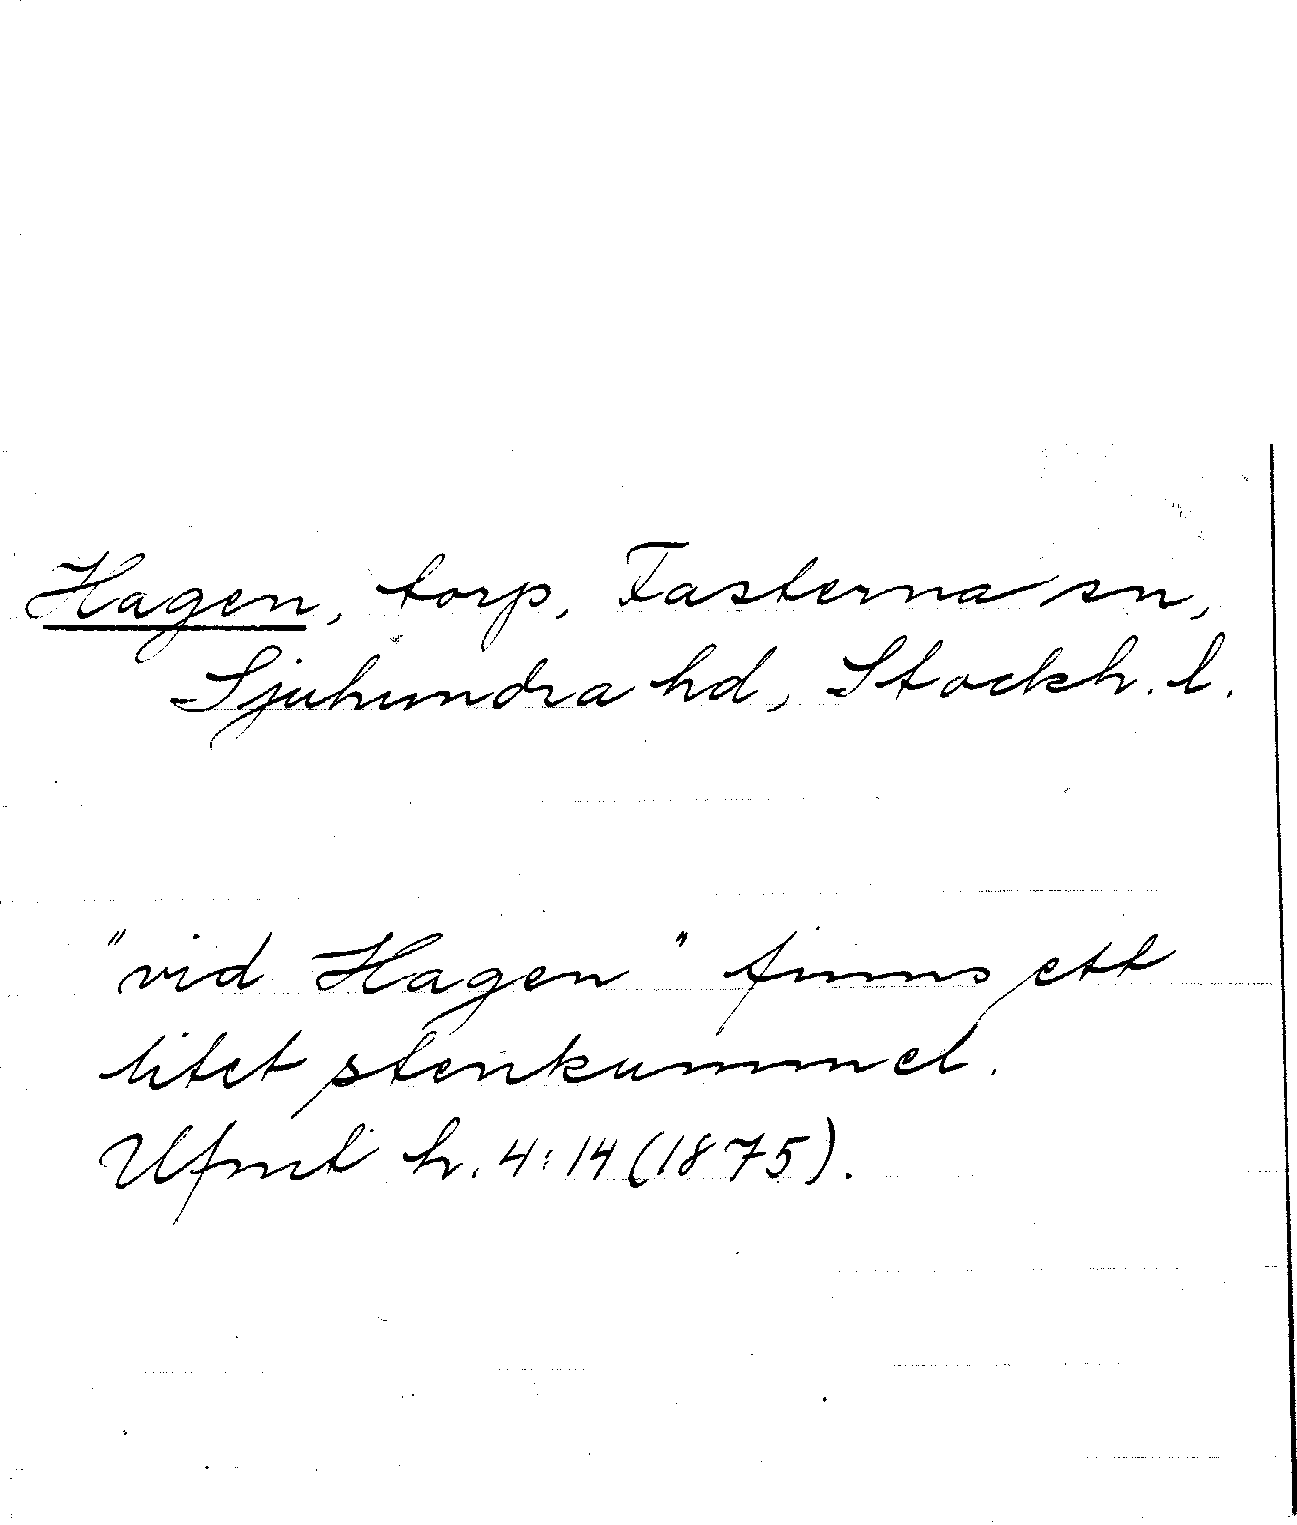 Hagen, torp, Fasterna sn,
Sjuhundra hd, Stockh. l.
"vid Hagen" finns ett
litet stenkummel.
Ufmt h. 4:14 (1875).